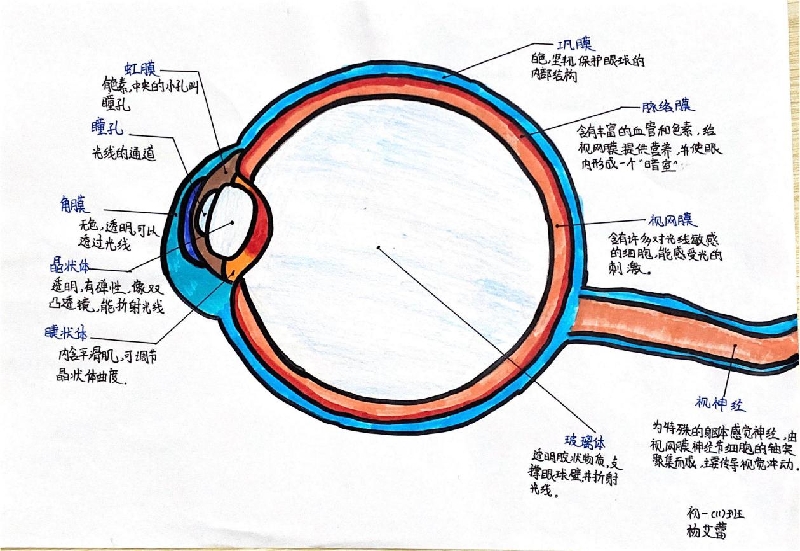 虹膜
有色素,中央的小孔叫
瞳孔
瞳孔
光线的通道
角膜
无色,透明,可以
透过光线
晶状体
透明,有弹性,像双
凸透镜,能折射光线
睫状体
内含平滑肌,可调节
晶状体曲度.
巩膜
白色,坚韧,保护眼球的
内部结构
脉络膜
含有丰富的血管和色素,给
视网膜提供营养,并使眼
内形成一个"暗室"
视网膜
含有许多对光线敏感
的细胞,能感受光的
刺激。
视神经
为特殊的躯体感觉神经,由
视网膜神经节细胞的轴突
聚集而成,主要传导视觉冲动.
玻璃体
透明胶状物质,支
撑眼球壁,并折射
光线。
初一(11)班
杨艾蕾